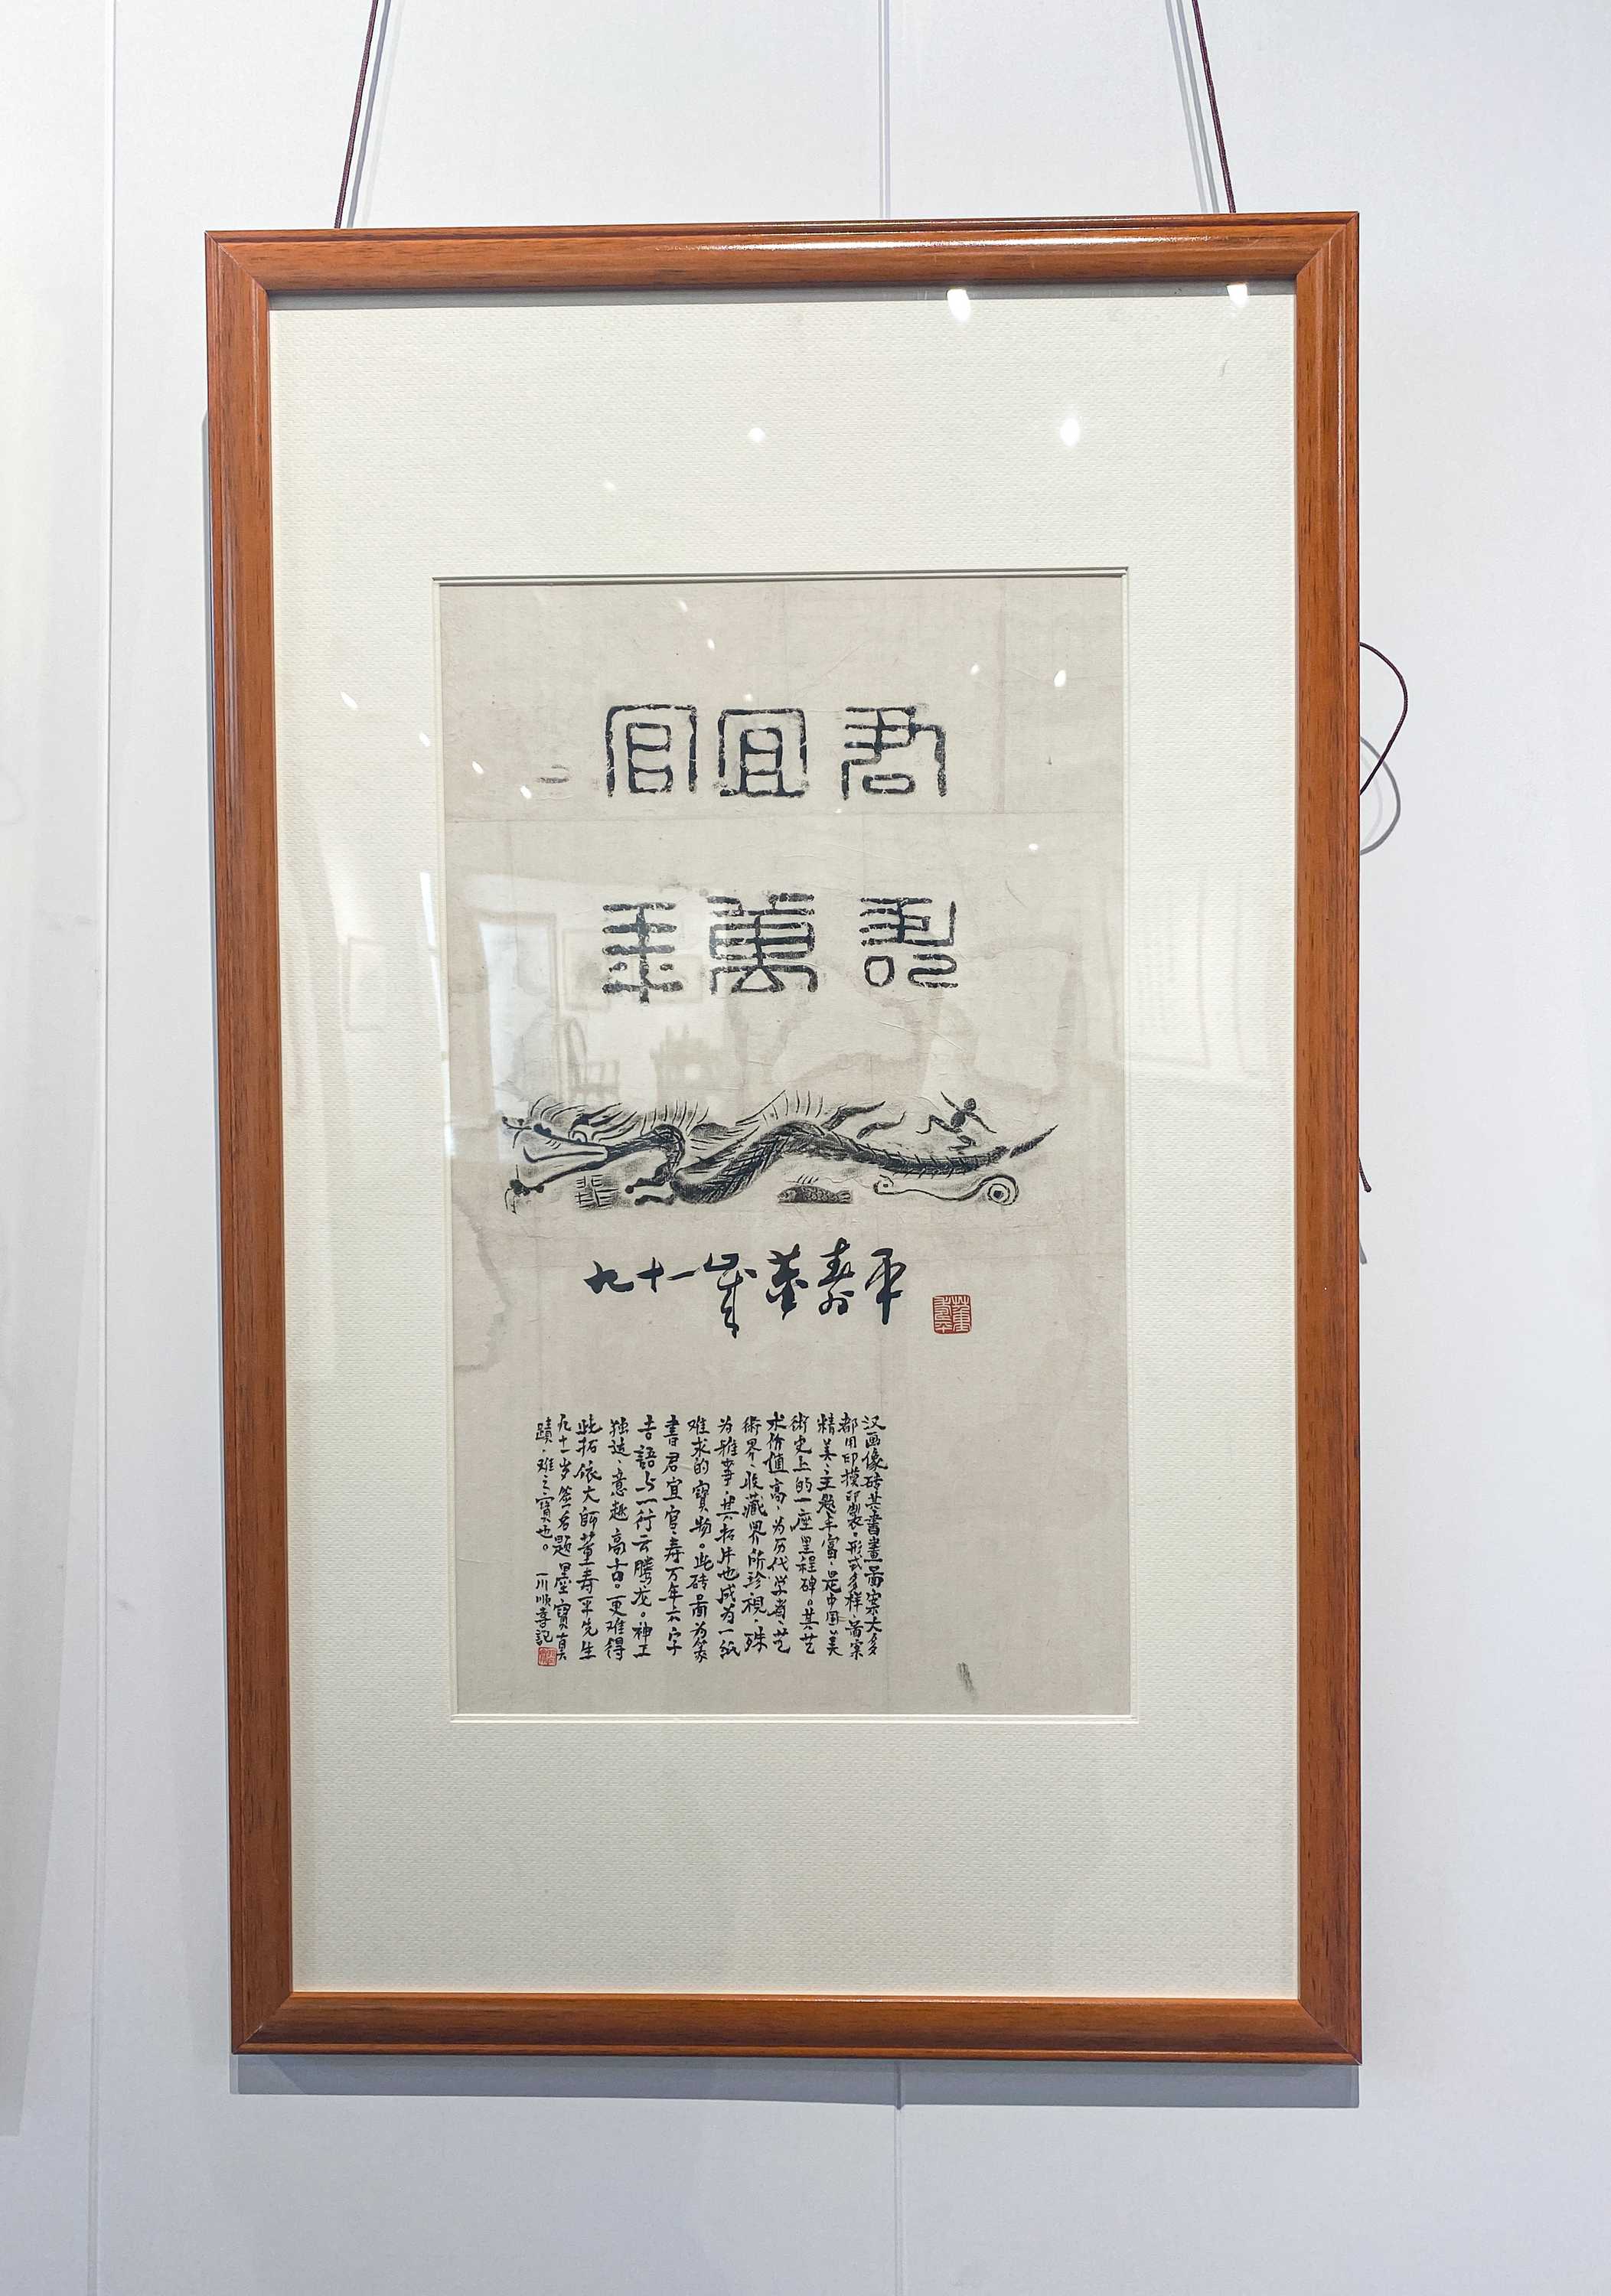 君宜官
壽萬年
九十一歲董壽平
董壽平
汉画像砖其書畫啚案大多
都用印摸印製、形式多样、啚案
精美、主题丰富、是中国美
術史上的一座里程碑。其艺
术价值高、为历代学者、艺
術界、收藏界所珍視、殊
为雅事、其拓片也成为一紙
难求的寶物。此砖啚为篆
書君宜官、寿万年六字
吉語与一行云腾龙。神工
独运、意趣高古。更难得
此拓依大師董寿平先生
九十一岁签名题墨寶真
蹟、难之寶也。一川顺喜記